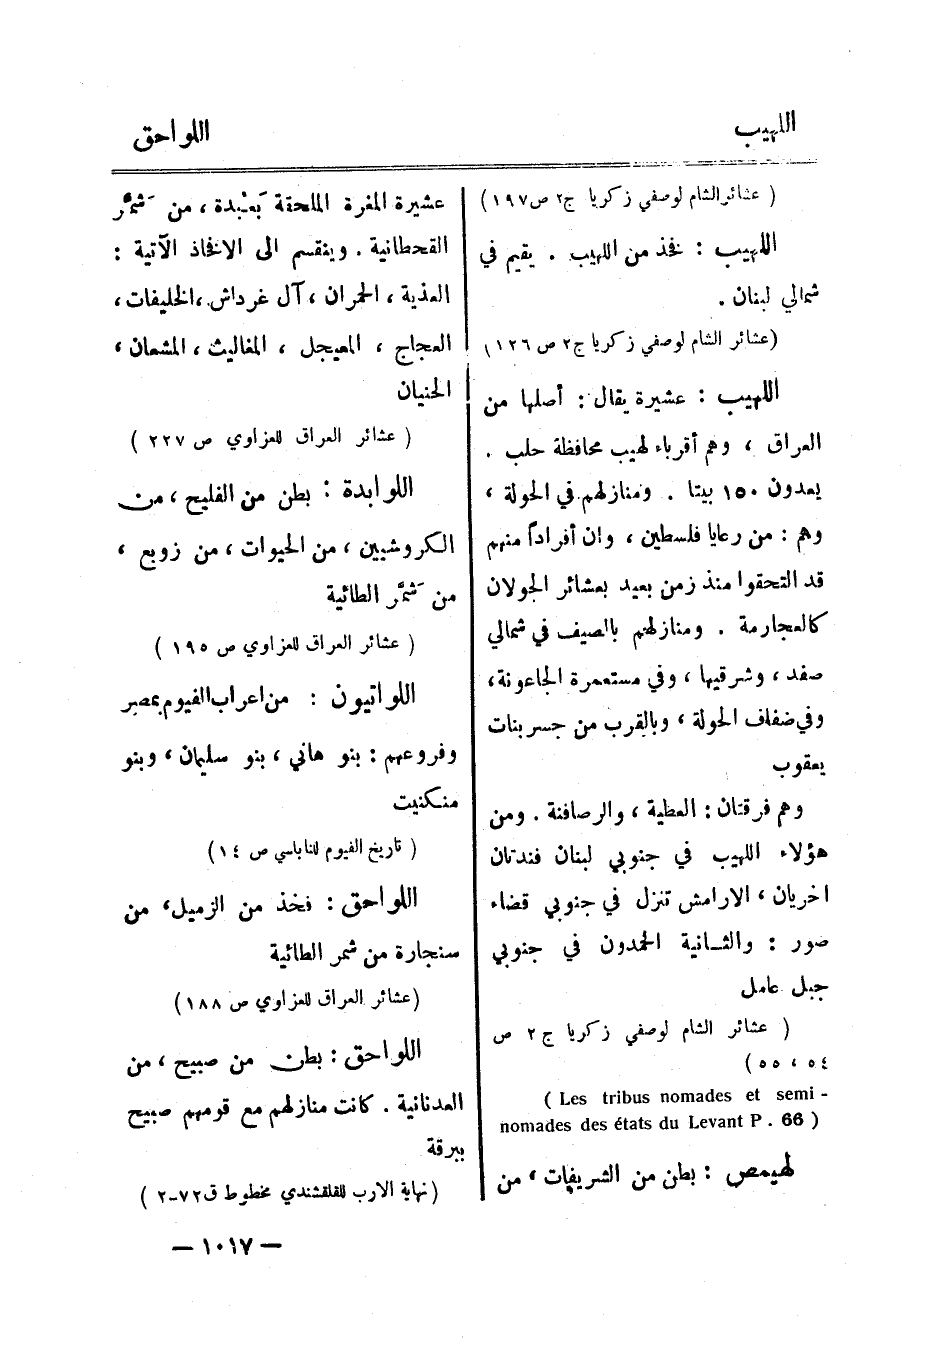 اللهيب
اللواحق
( عشائر الشام لوصفي زكريا ج٢ ص١٩٧)
اللهيب : فخذ من اللهيب . يقيم في
شمالي لبنان .
(عشائر الشام لوصفي زكريا ج٢ ص ١٢٦)
اللهيب : عشيرة يقال : أصلها من
العراق ، وهم أقرباء لهيب محافظة حلب .
يعدون ١٥٠ بيتا . ومنازلهم في الحولة ،
وهم : من رعايا فلسطين ، وان أفراداً منهم
قد التحقوا منذ زمن بعيد بعشائر الجولان
كالعجارمة . ومنازلهم بالصيف في شمالي
صفد ، وشرقيها ، وفي مستعمرة الجاعونة،
وفي ضفاف الحولة ، وبالقرب من جسر بنات
يعقوب
وهم فرقتان : العطية ، والرصافنة . ومن
هؤلاء اللهيب في جنوبي لبنان فندتان
اخريان ، الارامش تنزل في جنوبي قضاء
صور : والثانية الحمدون في جنوبي
جبل عامل
( عشائر الشام لوصفي زكريا ج ٢ ص
٥٤ ، ٥٥ )
( Les tribus nomades et semi -
nomades des états du Levant P . 66 )
لهيمص : بطن من الشريفات ، من
عشيرة المغرة الملحقة بَعبْدة ، من شَمَّر
القحطانية . وينقسم الى الافخاذ الآتية :
العذية ، الحمران ، آل غرداش ، الخليفات ،
العجاج ، المعيجل ، المغاليث ، المشعان ،
الحنيان
( عشائر العراق للعزاوي ص ٢٢٧ )
اللوابدة : بطن من الفليح ، من
الكروشيين ، من الحيوات ، من زوبع ،
من شَمَّر الطائية
( عشائر العراق للعزاوي ص ١٩٥ )
اللواتيون : من اعراب الفيوم بمصر
وفروعهم : بنو هاني ، بنو سليمان ، وبنو
منكنيت
( تاريخ الفيوم للنابلسي ص ١٤ )
اللواحق : فخذ من الزميل، من
سنجارة من شمر الطائية
(عشائر العراق للعزاوي ص ١٨٨ )
اللواحق : بطن من صبيح ، من
العدنانية . كانت منازلهم مع قومهم صبيح
ببرقة
( نهاية الارب للقلقشندي مخطوط ق٧٢-٢ )
— ١٠١٧ —